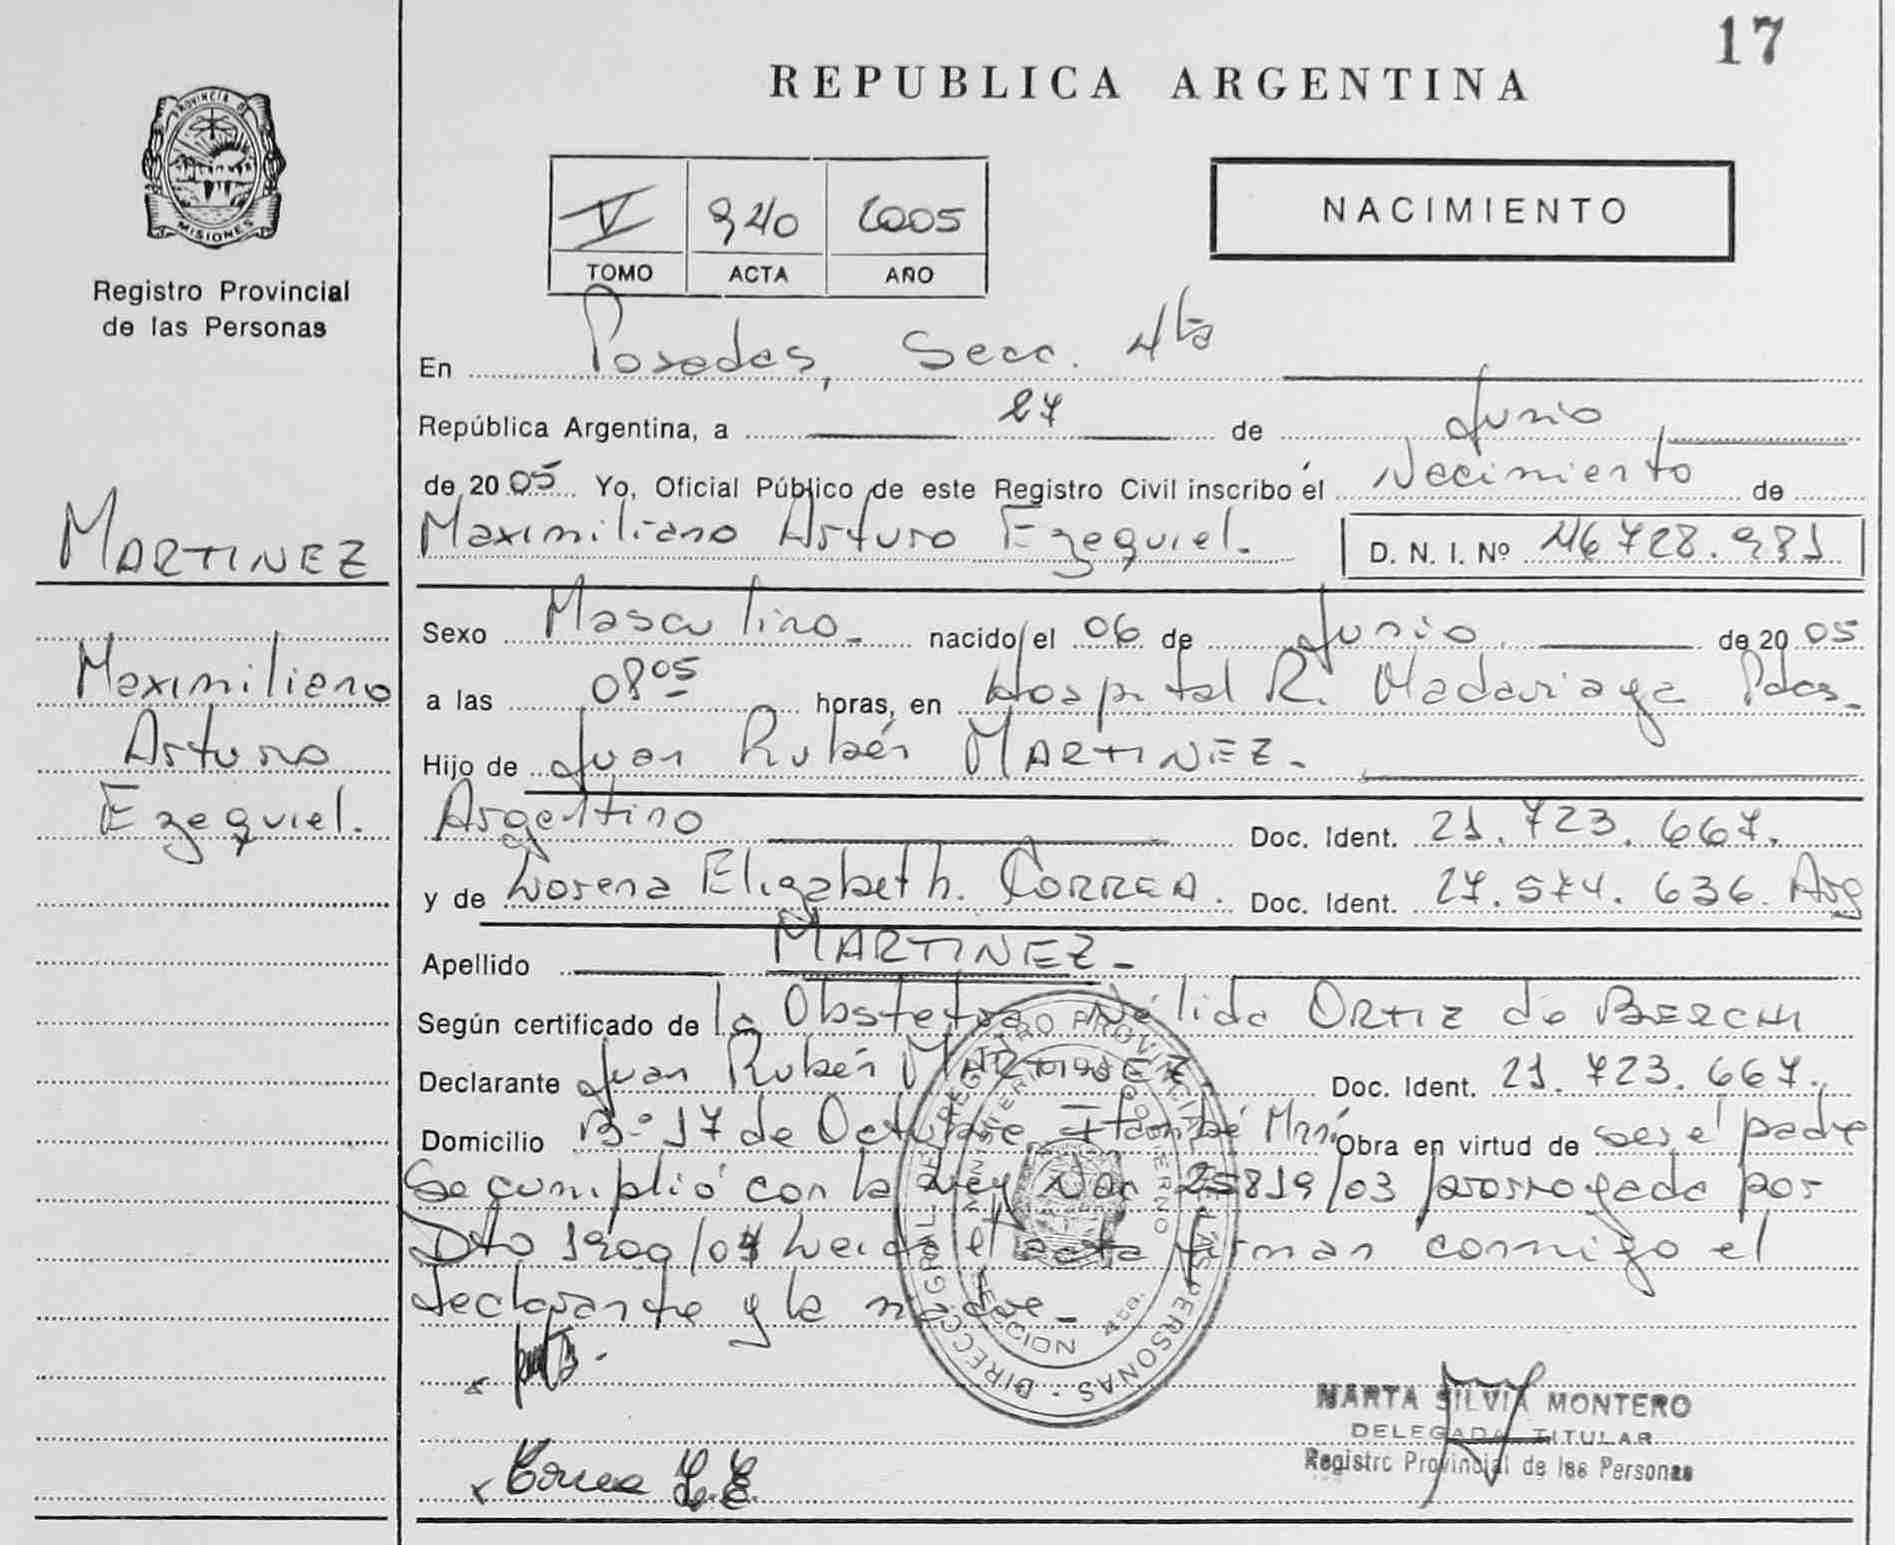 17
REPUBLICA ARGENTINA
PROVINCIA DE
MISIONES
Registro Provincial
de las Personas
V 940 2005
TOMO ACTA AÑO
NACIMIENTO
En Posadas, Secc. 4ta
República Argentina, a 27 de Junio
de 2005 Yo, Oficial Público de este Registro Civil inscribo el Nacimiento de
Maximiliano Arturo Ezequiel. D. N. I. Nº 46728.981
MARTINEZ
Maximiliano
Arturo
Ezequiel.
Sexo Masculino nacido el 06 de Junio de 2005
a las 08 05 horas, en Hospital R. Madariaga Pdas.
Hijo de Juan Rubén MARTINEZ.
Argentino Doc. Ident. 21.723.667.
y de Lorena Elizabeth. CORREA. Doc. Ident. 27.574.636. Arg
Apellido MARTINEZ
Según certificado de la Obstetra Nélida ORTIZ de BERCHI
Declarante Juan Rubén MARTINEZ. Doc. Ident. 21.723.667.
Domicilio Bº 17 de Octubre Itaembé Miní Obra en virtud de ser el padre
Se cumplió con la Ley Nac 25819/03 prorrogada por
Dto 1900/04 Leida el acta firman conmigo el
declarante y la madre
DIRECC. GRAL. DE REGISTRO PROVINCIAL DE LAS PERSONAS
MINISTERIO DE GOBIERNO
SECCION 4ta.
Correa L.E.
MARTA SILVIA MONTERO
DELEGADA TITULAR
Registro Provincial de las Personas